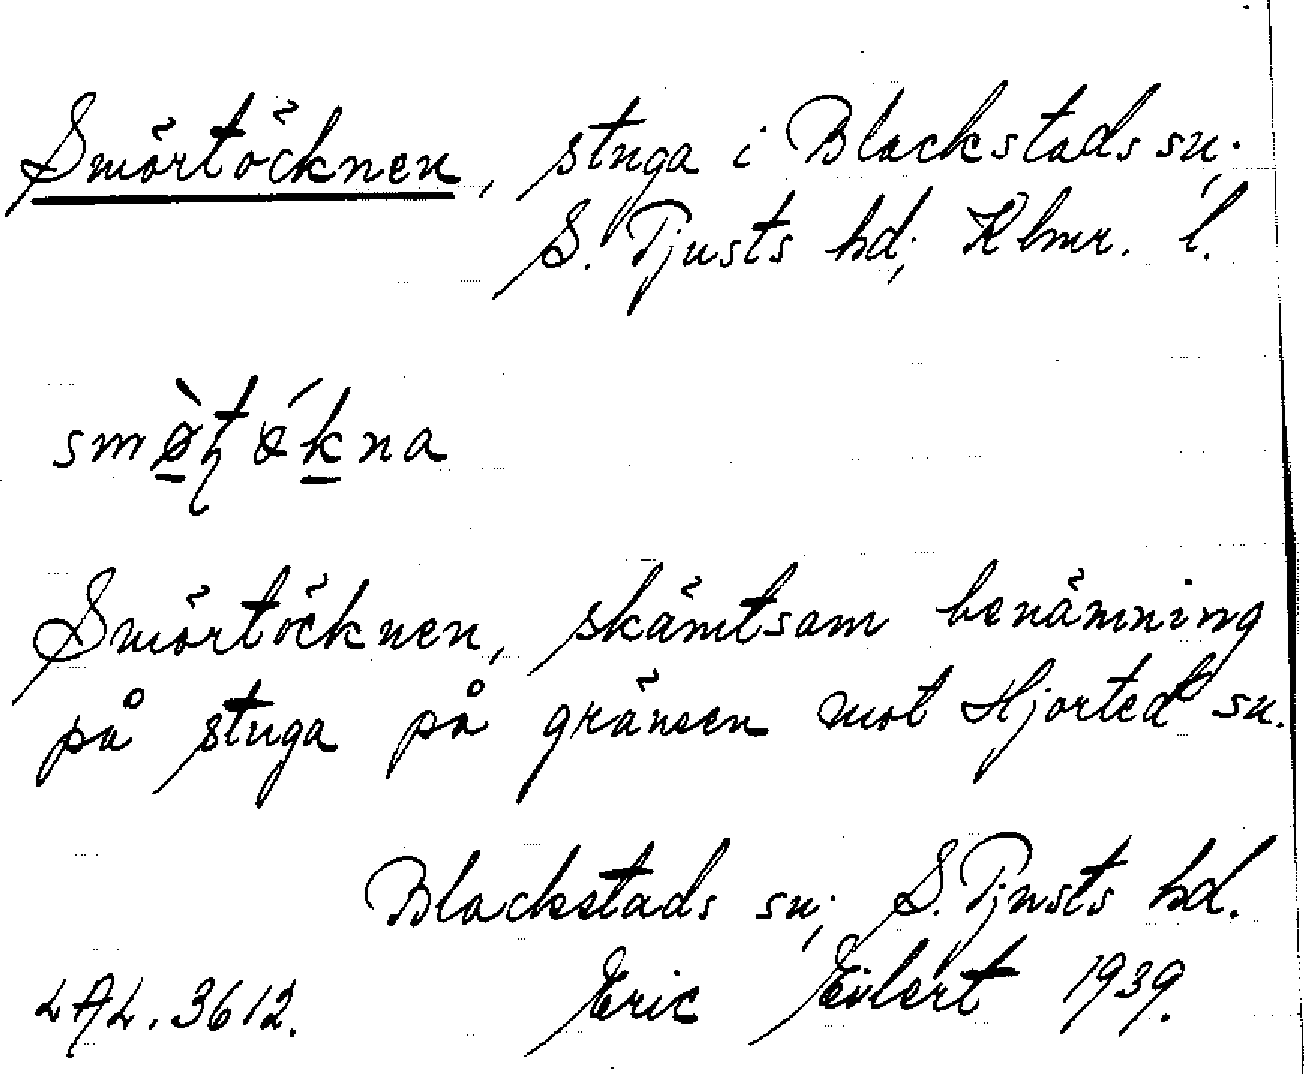 Smörtöcknen, stuga i Blackstads sn,
S. Tjusts hd, Klmr. l.
smø̀ʈǿkna
Smörtöcknen, skämtsam benämning
på stuga på gränsen mot Hjorted sn.
Blackstads sn, S. Tjusts hd.
LAL. 3612. Eric Eilert 1939.